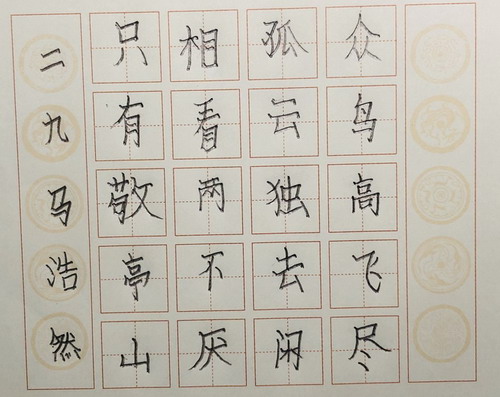 众鸟高飞尽
孤云独去闲
相看两不厌
只有敬亭山
二九马浩然